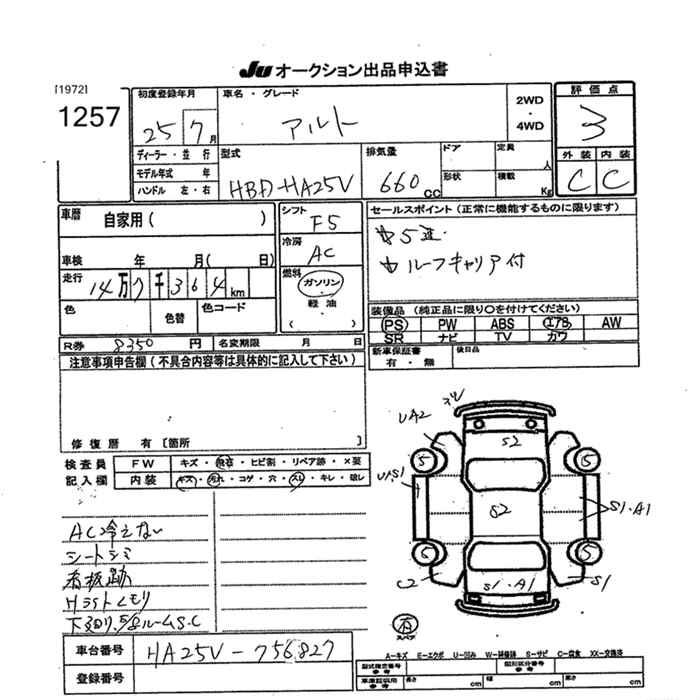 JU オークション出品申込書
[1972]
1257
初度登録年月
25 7月
車名・グレード
アルト
2WD
・
4WD
評価点
3
外装 内装
C C
ディーラー・並行
モデル年式 年
ハンドル 左・右
型式
HBD-HA25V
排気量
660 cc
ドア
定員
人
形状
積載
Kg
車歴
自家用( )
車検 年 月( 日)
走行
14万7千364km
色
色替
色コード
シフト
F5
冷房
AC
燃料
ガソリン・
軽油
( )
セールスポイント(正常に機能するものに限ります)
5速
ルーフキャリア付
装備品(純正品に限り○を付けてください)
PS PW ABS エアB AW
SR ナビ TV カワ
R券 8350 円
名変期限 月 日
新車保証書
有・無
後日品
注意事項申告欄(不具合内容等は具体的に記入して下さい)
修復歴 有[箇所 ]
検査員
記入欄
FW キズ・飛石・ヒビ割・リペア跡・×要
内装 キズ・汚れ・コゲ・穴・スレ・キレ・破レ
AC冷えない
シートシミ
看板跡
下回り、S/Sルーム S.C
UA2
S2
5 5
U1S1
S2
S1・A1
5 5
C2
S1・A1
S1
有
スペア
A-キズ E-エクボ U-凹み W-補修跡 S-サビ C-腐食 XX-交換済
車台番号 HA25V-756827
登録番号
型式指定番号
参考
類別区分番号
参考
車庫証明用
参考
長さ cm 幅 cm 高さ cm